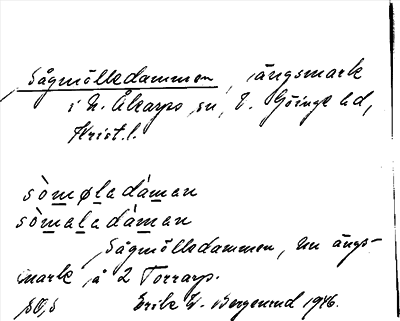 Sågmölledammen, ängsmark
i N. Åkarps sn, V. Göinge hd,
Krist. l.
sòmøladàman
sòmaladàman
Sågmölledammen, nu ängs-
mark å 2 Torrarp.
Erik W. Bergenrud 1946.